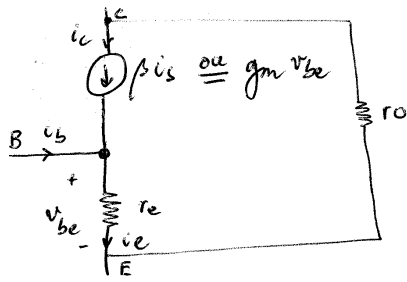 C
ic
βib ou gm vbe
ro
B ib
+
vbe re
- ie
E